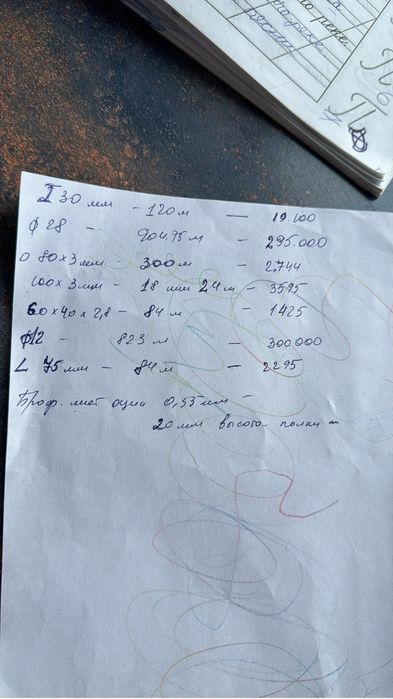 по реке
I 30 мм - 120 м — 19.100
ф 28 - 904.75 м - 295.000
□ 80х3 мм - 300 м - 2,744
100х3 мм - 18 или 24 м - 3595
60х40х2,8 - 84 м - 1425
ф12 - 823 м - 300.000
L 75 мм - 84 м - 2295
Проф. лист оцин 0,55 мм -
20 мм высота полки -